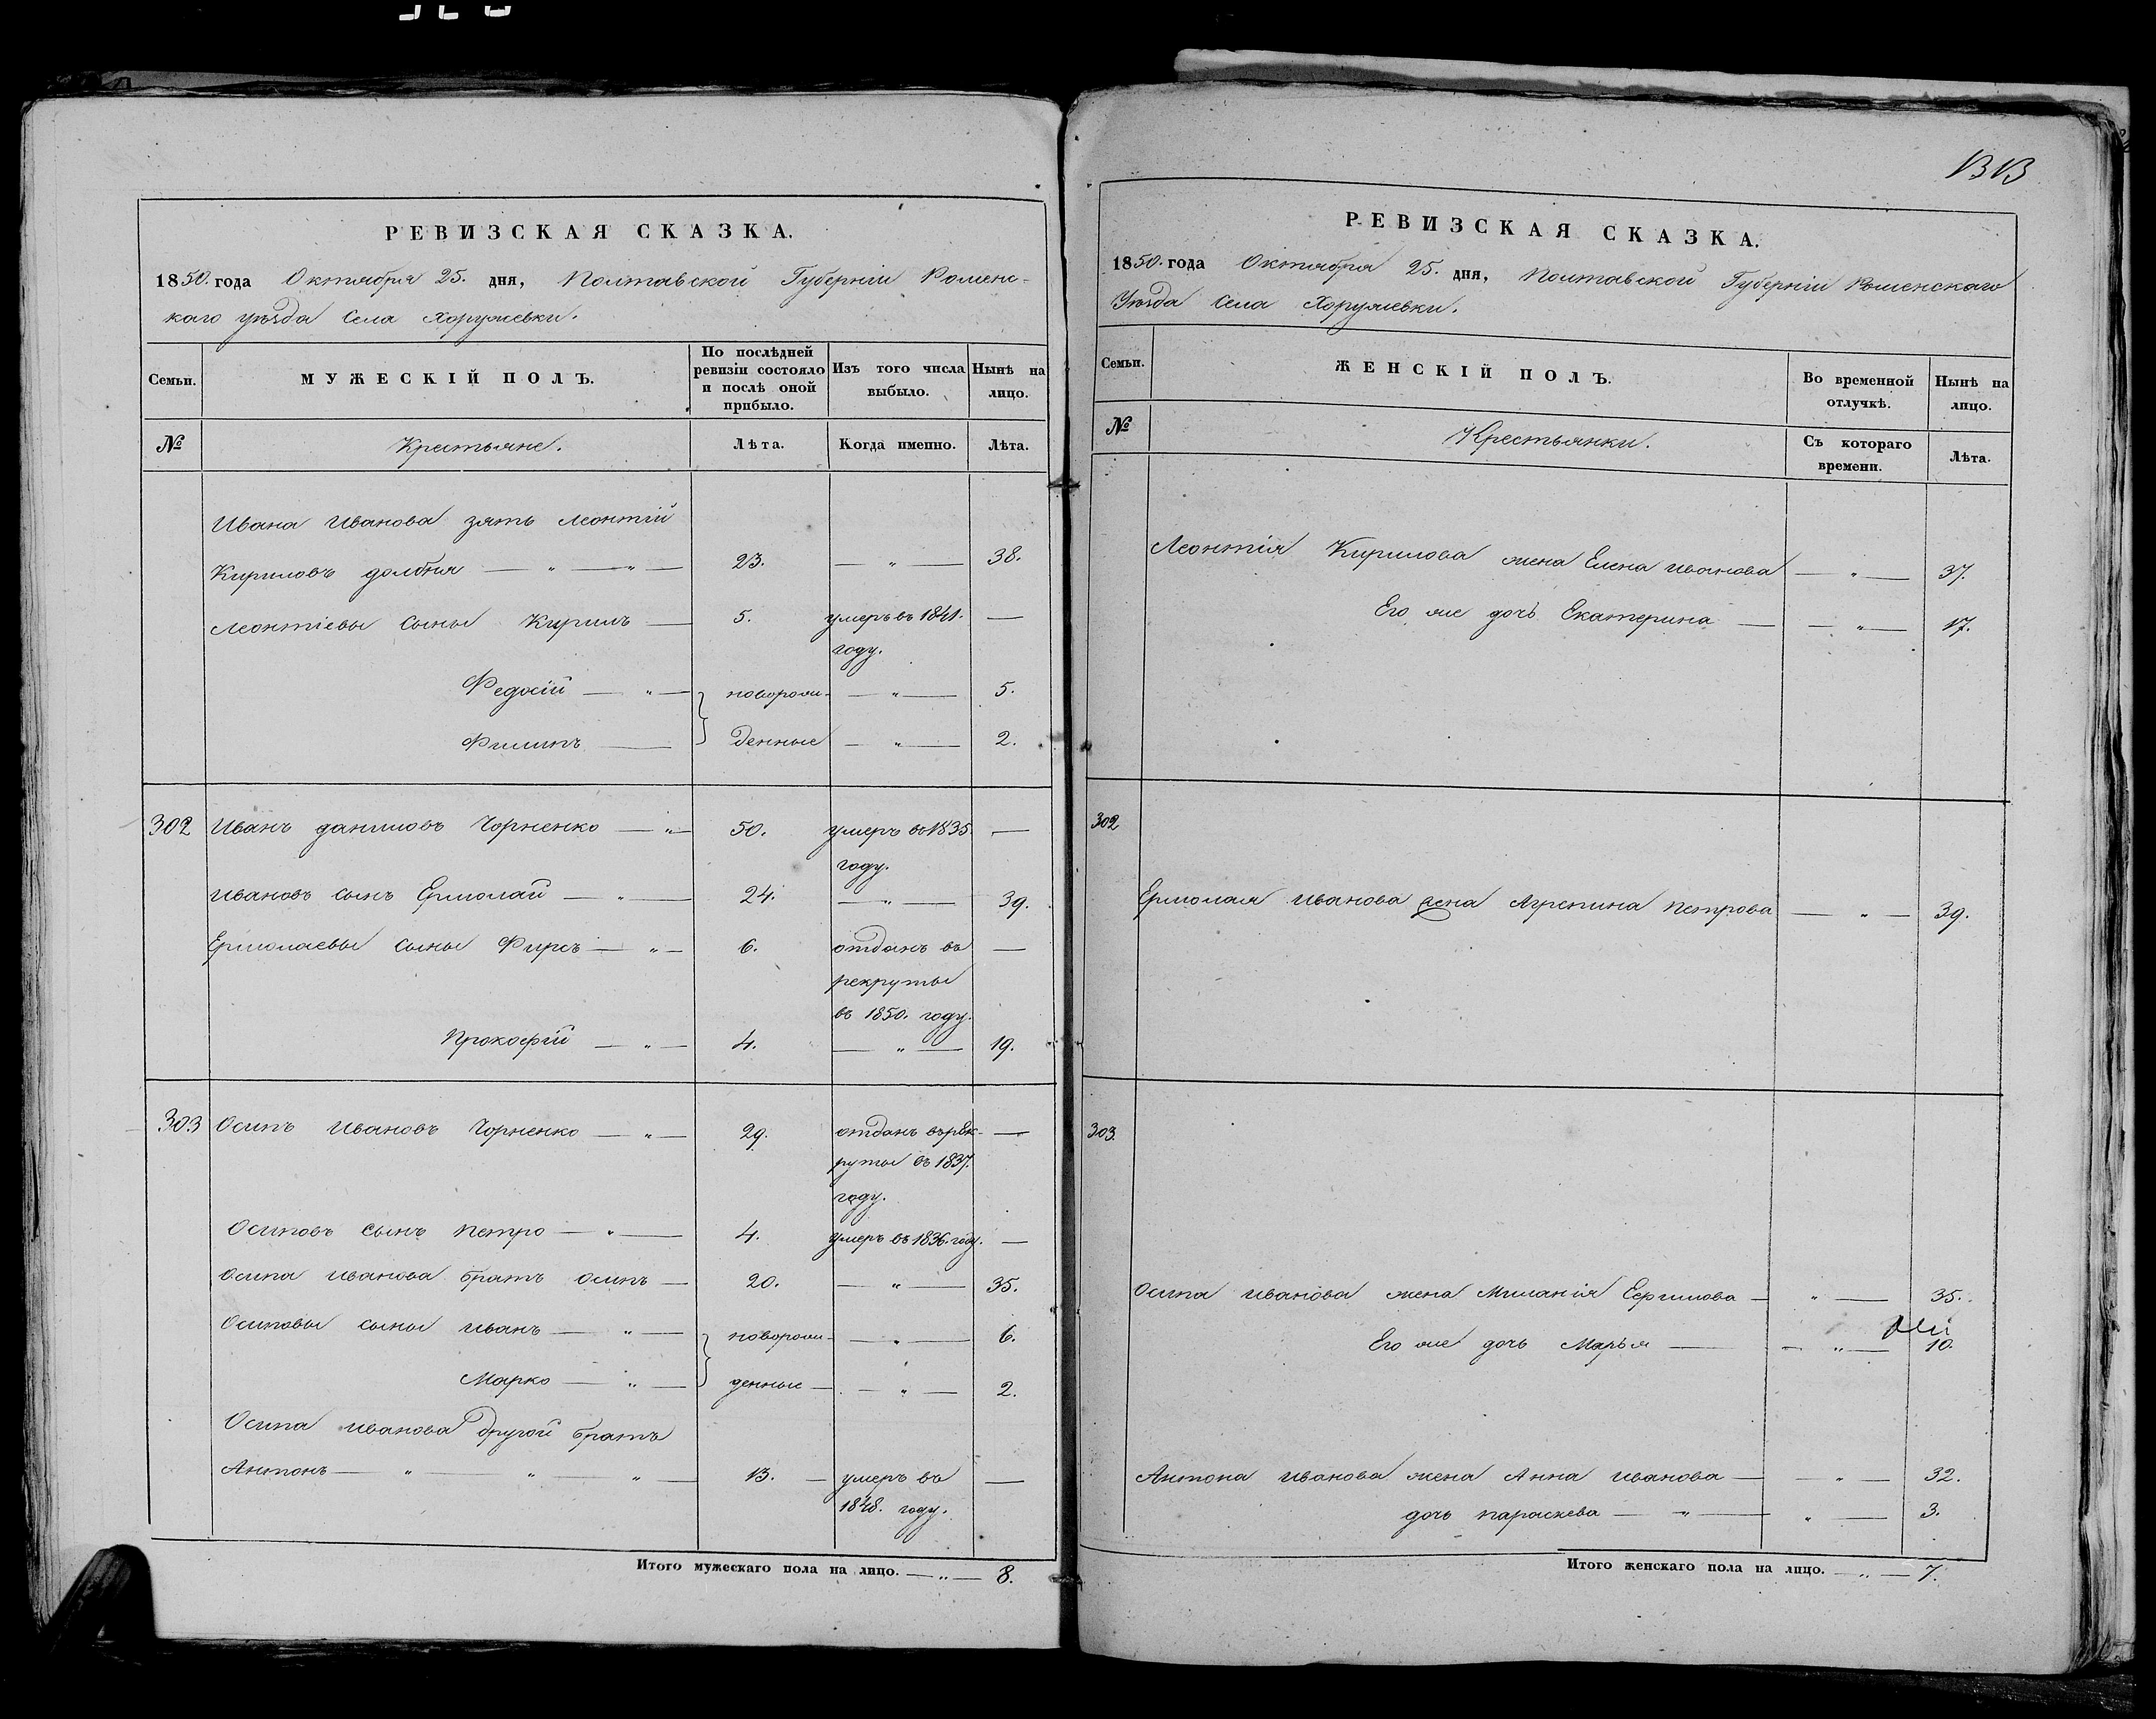 РЕВИЗСКАЯ СКАЗКА.
1850. года Октября 25. дня, Полтавской Губерніи Роменс-
каго уѣзда Села Хоружевки.
Семьи.
МУЖЕСКІЙ ПОЛЪ.
По послѣдней ревизіи состояло и послѣ оной прибыло.
Изъ того числа выбыло.
Нынѣ на лицо.
№ Крестьяне. Лѣта. Когда именно. Лѣта.
Ивана Иванова зять Леонтій
Кириловъ долбня — „ — „ — 23. — „ — 38.
Леонтіевы сыны Кирилъ — 5. умеръ въ 1841. —
году.
Федосій — „ — новорож- — „ — 5.
Филипъ — денные — „ — 2.
302 Иванъ даниловъ Чорненко — „ — 50. умеръ въ 1835. —
году.
Ивановъ сынъ Ермолай — „ — 24. — „ — 39.
Ермолаевы сыны Фирсъ — „ — 6. отданъ въ —
рекруты
въ 1850. году.
Прокофій — „ — 4. — „ — 19.
303 Осипъ Ивановъ Чорненко — „ — 29. отданъ въ рек- —
руты въ 1837.
году.
Осиповъ сынъ Петро — „ — 4. умеръ въ 1836. году. —
Осипа Иванова братъ Осипъ — 20. — „ — 35.
Осиповы сыны Иванъ — „ — новорож- — „ — 6.
Марко — „ — денные — — „ — 2.
Осипа Иванова другой братъ
Антонъ — „ — „ — „ — 13. — умеръ въ —
1848. году.
Итого мужескаго пола на лицо. — „ — 8.
313
РЕВИЗСКАЯ СКАЗКА.
1850. года Октября 25. дня, Полтавской Губерніи Роменскаго
Уѣзда Села Хоружевки.
Семьи.
ЖЕНСКІЙ ПОЛЪ.
Во временной отлучкѣ.
Нынѣ на лицо.
№ Крестьянки. Съ котораго времени. Лѣта.
Леонтія Кирилова жена Елена Иванова — „ — 37.
Его же дочь Екатерина — — „ — 17.
302
Ермолая Иванова жена Агрепина Петрова — „ — 39.
303.
Осипа Иванова жена Миланія Ефимова — „ — 35.
Его же дочь Марья — — „ — 10.
Антона Иванова жена Анна Иванова — — „ — 32.
дочь Параскева — „ — „ — 3.
Итого женскаго пола на лицо. — „ — 7.